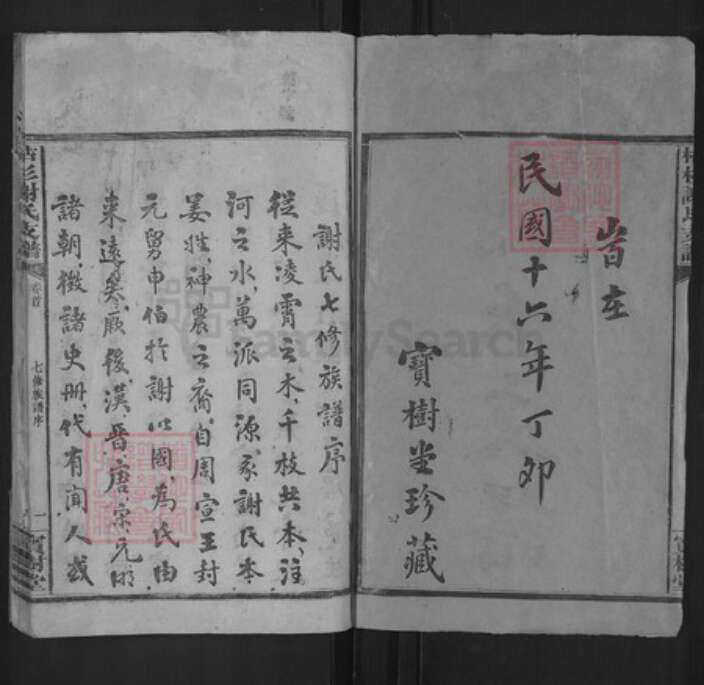 旹在
民國十六年丁卯
寶樹堂珍藏
謝氏七修族譜序
從来凌霄之木千枝共本注
河之水萬派同源我謝氏本
姜姓神農之裔自周宣王封
元舅申伯扵謝以國為氏由
来遠矣厥後漢晉唐宋元明
諸朝徵諸史册代有聞人或
謝氏支譜
卷首
七修族譜序
一
寶樹堂
FamilySearch